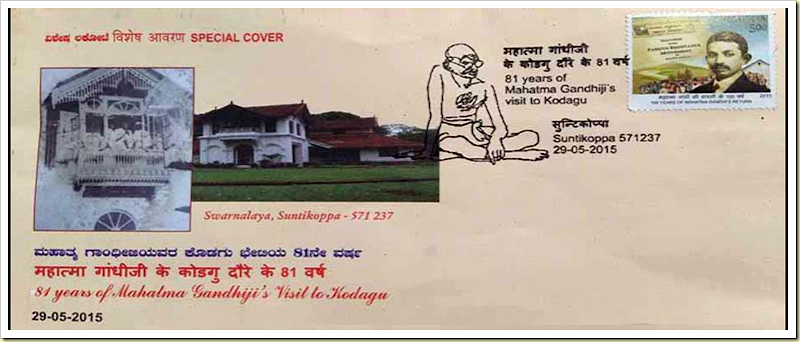 ವಿಶೇಷ ಲಕೋಟೆ विशेष आवरण SPECIAL COVER
महात्मा गांधीजी
के कोडगु दौरे के 81 वर्ष
81 years of
Mahatma Gandhiji's
visit to Kodagu
सुन्टिकोप्पा
Suntikoppa 571237
29-05-2015
PASSIVE RESISTANCE
MOVEMENT
500
महात्मा गांधी की वापसी के 100 वर्ष 2015
100 YEARS OF MAHATMA GANDHI'S RETURN
Swarnalaya, Suntikoppa - 571 237
ಮಹಾತ್ಮ ಗಾಂಧೀಜಿಯವರ ಕೊಡಗು ಭೇಟಿಯ 81ನೇ ವರ್ಷ
महात्मा गांधीजी के कोडगु दौरे के 81 वर्ष
81 years of Mahatma Gandhiji's Visit to Kodagu
29-05-2015